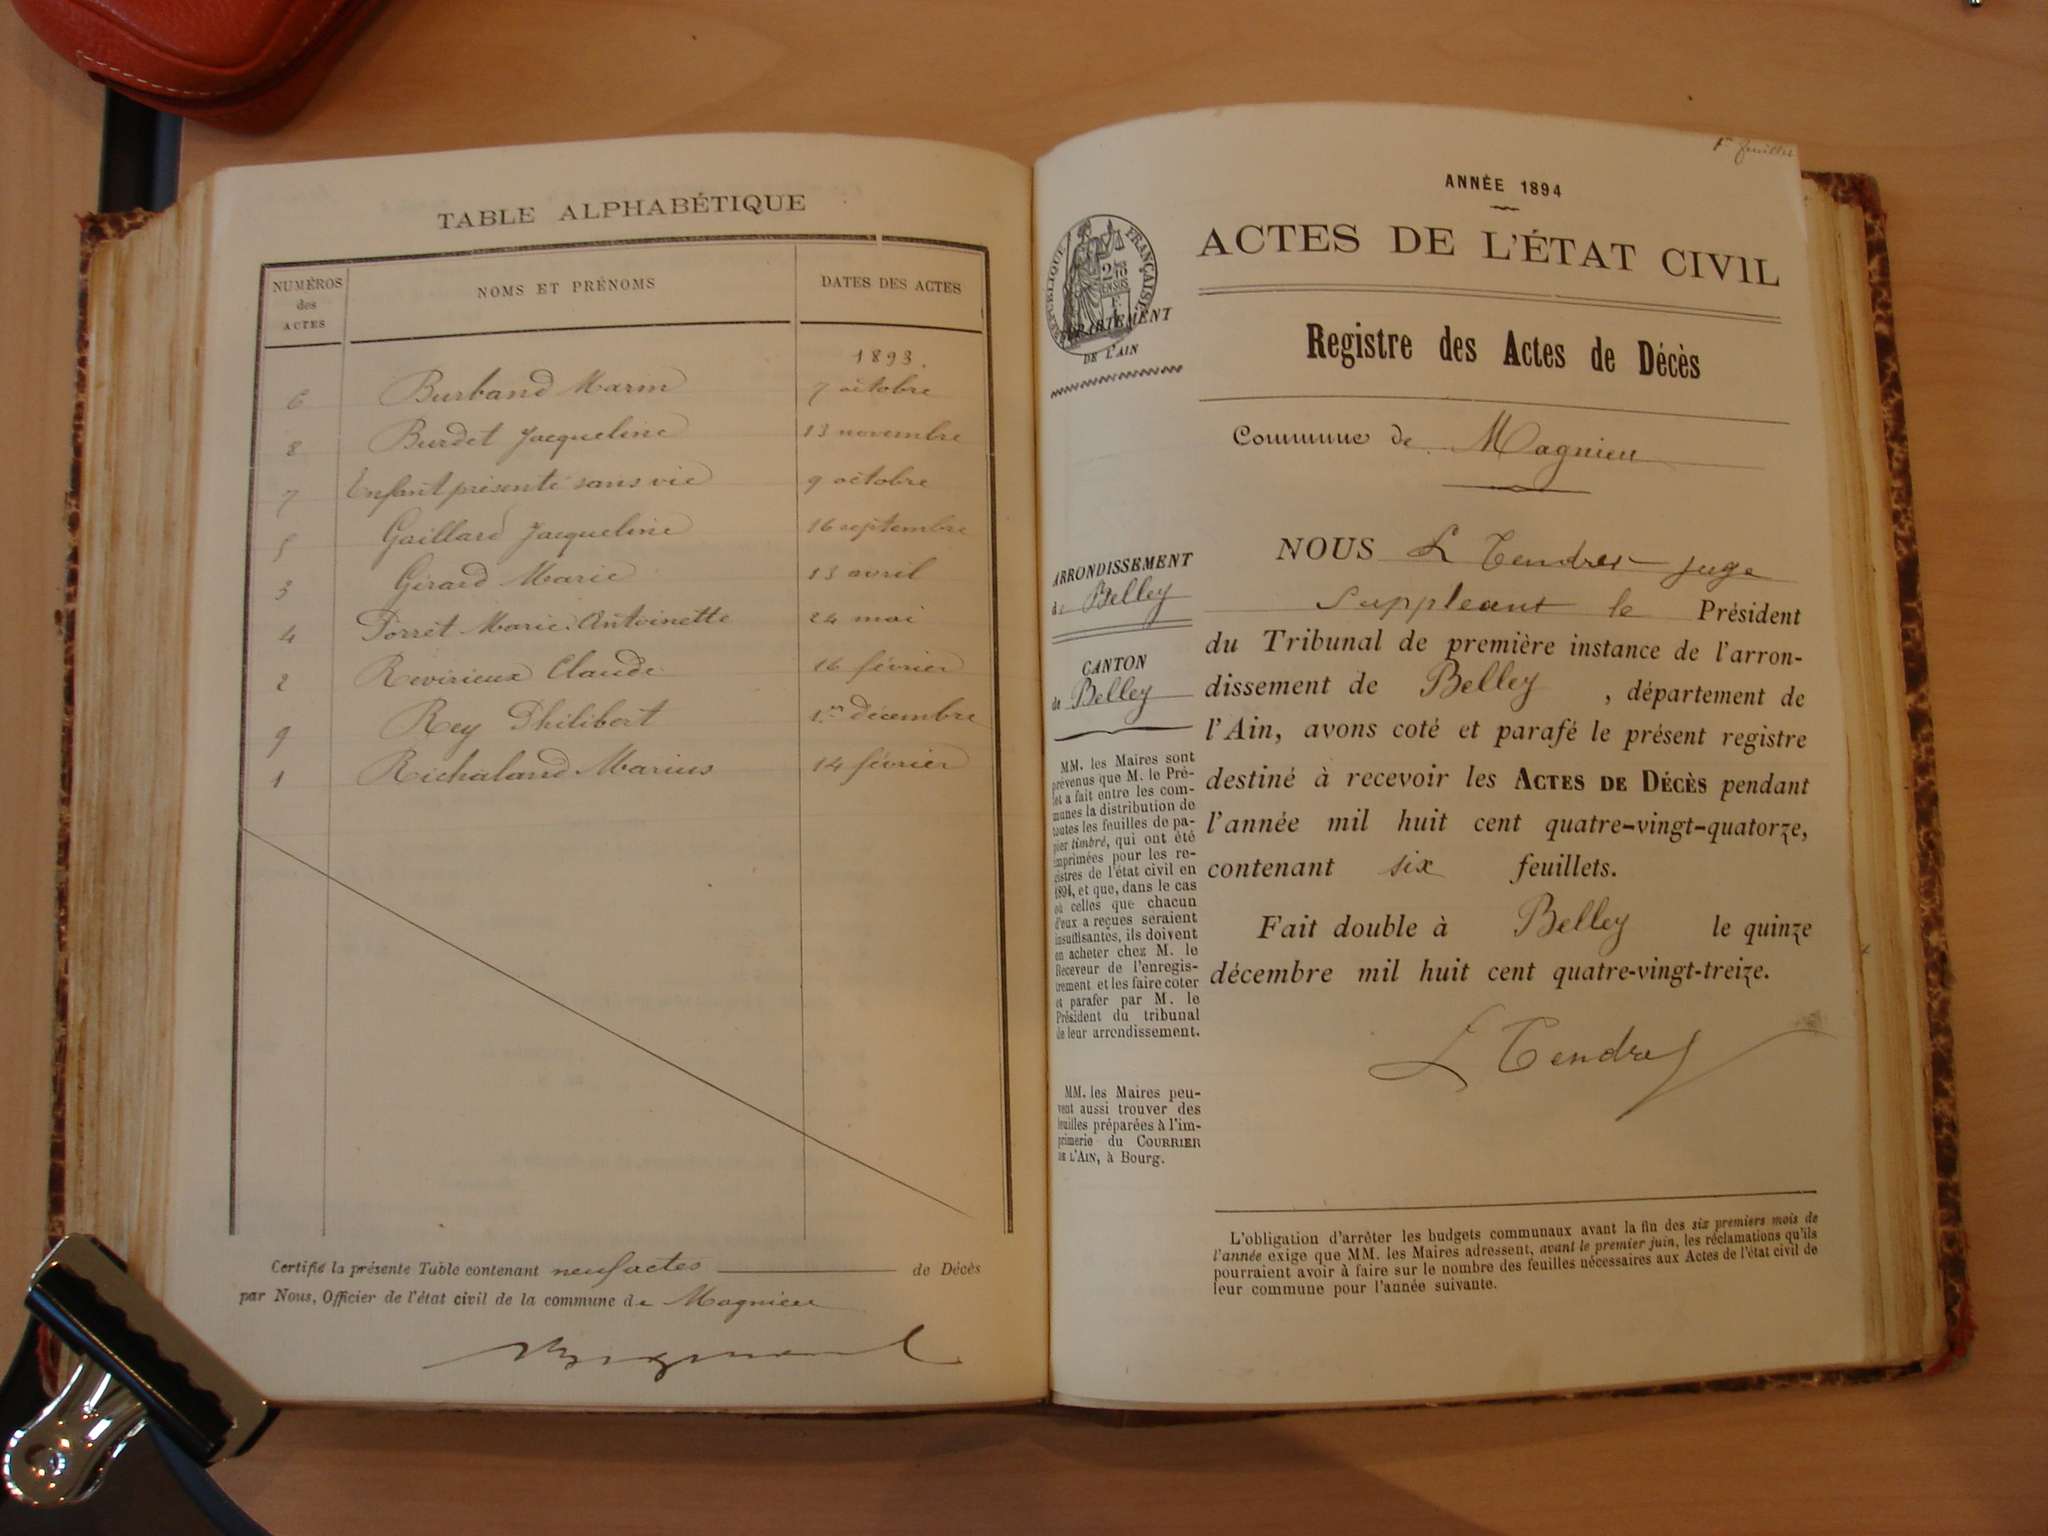 TABLE ALPHABÉTIQUE
NUMÉROS des ACTES
NOMS ET PRÉNOMS
DATES DES ACTES
1893.
6 Burband Marin 7 octobre
8 Burdet Jacqueline 13 novembre
7 Enfant présenté sans vie 9 octobre
5 Gaillard Jacqueline 16 septembre
3 Girard Marie 13 avril
4 Porret Marie Antoinette 24 mai
2 Revirieux Claude 16 février
9 Rey Philibert 1er décembre
1 Richaland Marius 14 février
Certifié la présente Table contenant neuf actes de Décès
par Nous, Officier de l'état civil de la commune de Magnieu
1er feuillet
ANNÉE 1894
ACTES DE L'ÉTAT CIVIL
RÉPUBLIQUE FRANÇAISE
DÉPARTEMENT
DE L'AIN
Registre des Actes de Décès
Commune de Magnieu
ARRONDISSEMENT
de Belley
CANTON
de Belley
MM. les Maires sont
prévenus que M. le Pré-
fet a fait entre les com-
munes la distribution de
toutes les feuilles de pa-
pier timbré, qui ont été
imprimées pour les re-
gistres de l'état civil en
1894, et que, dans le cas
où celles que chacun
d'eux a reçues seraient
insuffisantes, ils doivent
en acheter chez M. le
Receveur de l'enregis-
trement et les faire coter
et parafer par M. le
Président du tribunal
de leur arrondissement.
MM. les Maires peu-
vent aussi trouver des
feuilles préparées à l'im-
primerie du COURRIER
DE L'AIN, à Bourg.
NOUS L Tendret juge
suppleant le Président
du Tribunal de première instance de l'arron-
dissement de Belley, département de
l'Ain, avons coté et parafé le présent registre
destiné à recevoir les ACTES DE DÉCÈS pendant
l'année mil huit cent quatre-vingt-quatorze,
contenant six feuillets.
Fait double à Belley le quinze
décembre mil huit cent quatre-vingt-treize.
L Tendret
L'obligation d'arrêter les budgets communaux avant la fin des six premiers mois de
l'année exige que MM. les Maires adressent, avant le premier juin, les réclamations qu'ils
pourraient avoir à faire sur le nombre des feuilles nécessaires aux Actes de l'état civil de
leur commune pour l'année suivante.